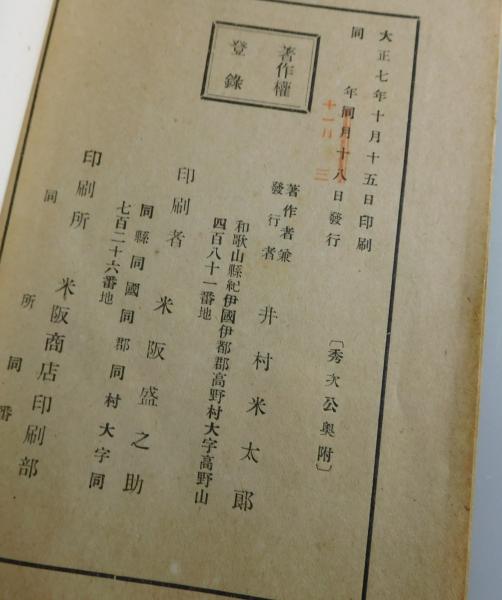 大正七年十月十五日印刷
同年同月十八日發行
十一月三
〔秀次公奥附〕
著作權
登錄
著作者兼
發行者
井村米太郎
和歌山縣紀伊國伊都郡高野村大字高野山
四百八十一番地
印刷者
米阪盛之助
同縣同國同郡同村大字同
七百二十六番地
印刷所
米阪商店印刷部
同
所
同
番